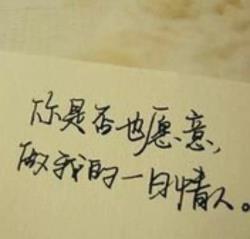 你是否也愿意,
做我的一日情人。